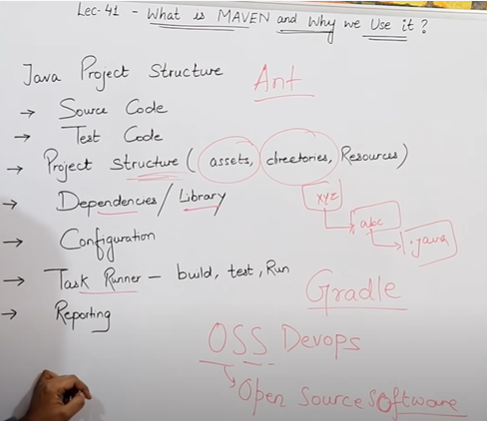 Lec-41 - What is MAVEN and Why we Use it?
Java Project Structure
Ant
→ Source Code
→ Test Code
→ Project Structure (assets, directories, Resources)
xyz
→ Dependencies/Library
abc
.java
→ Configuration
→ Task Runner - build, test, Run
Gradle
→ Reporting
OSS Devops
Open Source Software